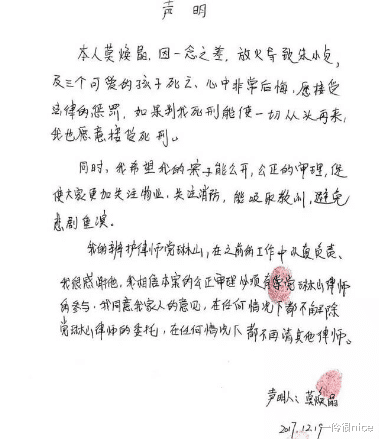 声明
本人莫焕晶,因一念之差,放火导致朱小贞,
及三个可爱的孩子死亡、心中非常后悔,愿接受
法律的惩罚,如果判我死刑能使一切从头再来,
我也愿意接受死刑。
同时,我希望我的案子能公开,公正的审理,促
使大家更加关注物业,关注消防,能吸取教训,避免
悲剧重演。
我的辩护律师党琳山,在之前的工作中认真负责、
我很感谢他,我相信本案的公正审理必须有党琳山律师
的参与,我同意我家人的意见,在任何情况下都不解除
党琳山律师的委托,在任何情况下都不再请其他律师。
声明人:莫焕晶
2017.12.19
一伶很nice